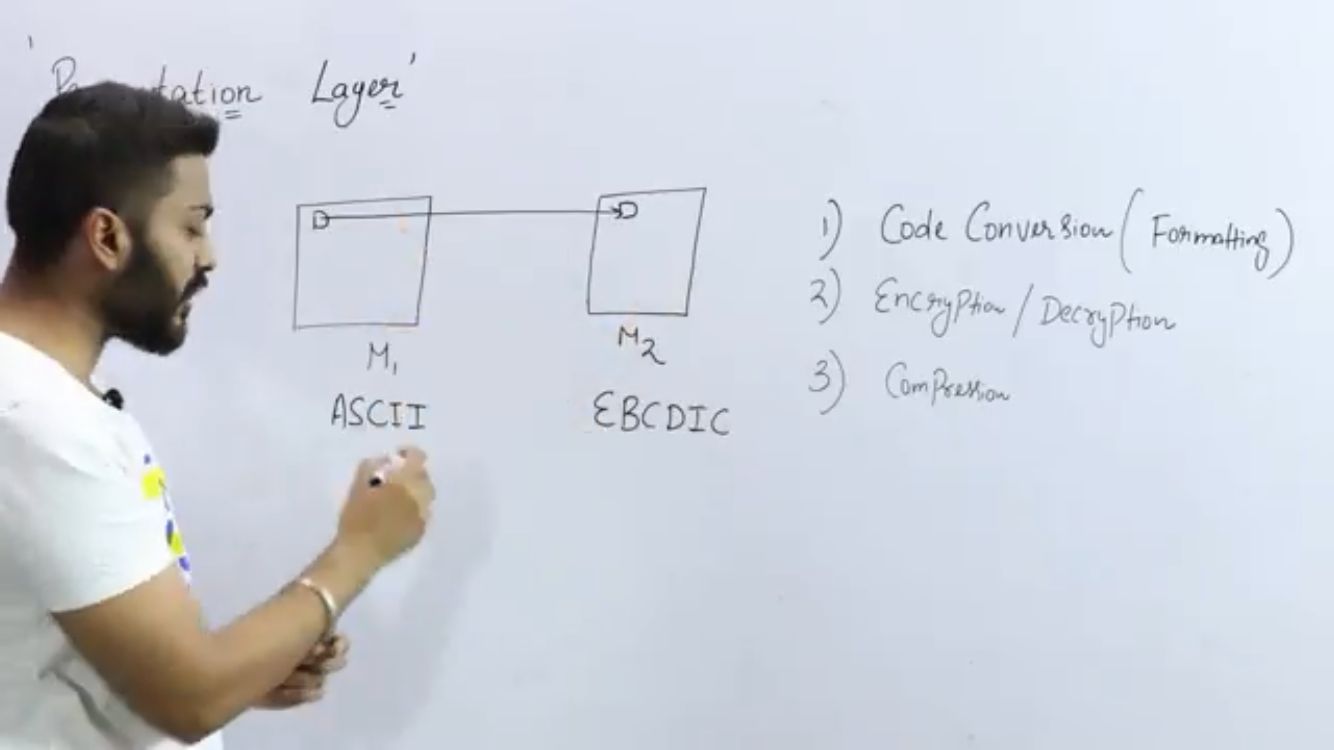 'P tation Layer'
D D
M1 M2
ASCII EBCDIC
1) Code Conversion (Formatting)
2) Encryption / Decryption
3) Compression